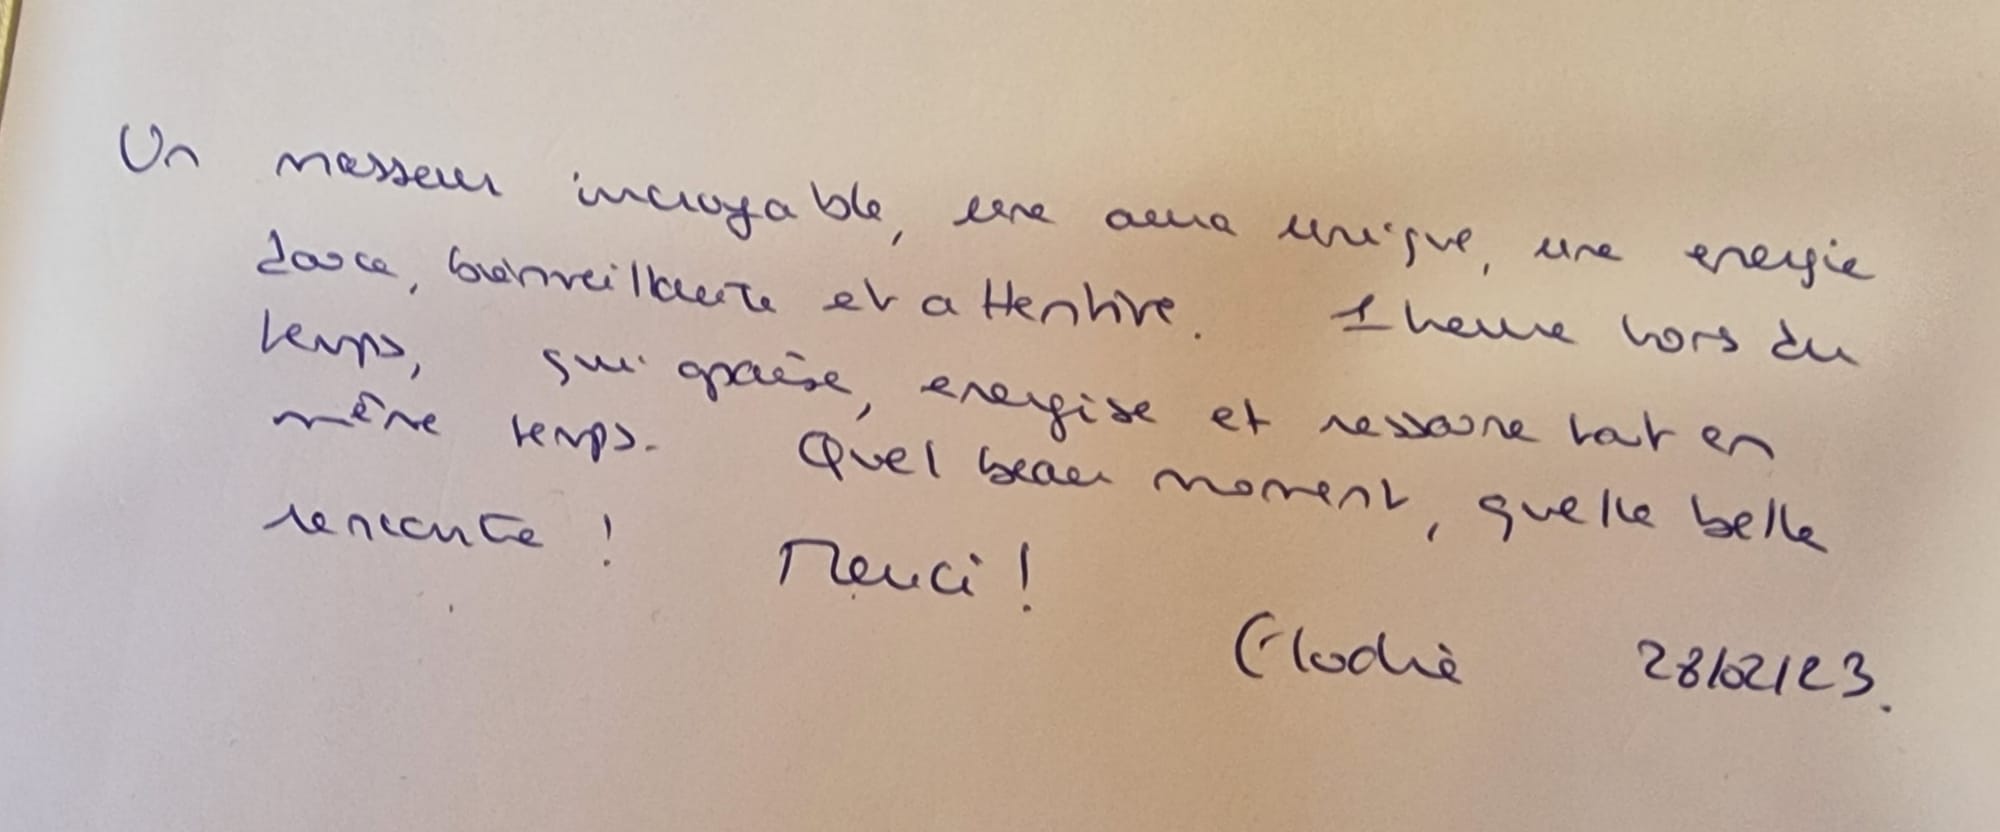 Un masseur incroyable, une aura unique, une energie
douce, bienveillante et attentive. 1 heure hors du
temps, qui apaise, energise et ressource tout en
même temps. Quel beau moment, quelle belle
rencontre ! Merci !
Elodie 28/02/23.